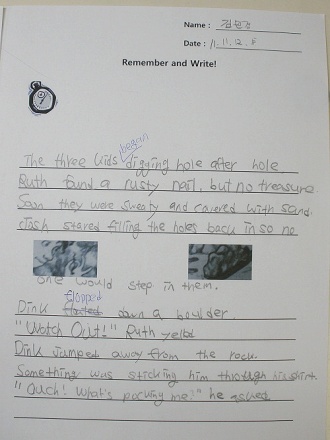 Name :
Date : 11. 12. 8
Remember and Write!
9
began
The three kids digging hole after hole.
Ruth found a rusty nail, but no treasure.
Soon they were sweaty and covered with sand.
Josh stared filling the holes back in so no
one would step in them.
flopped
Dink down a boulder.
"Watch Out!" Ruth yelld
Dink Jumped away from the rock.
Something was sticking him through his shirt.
"Ouch! What's pocking me?" he asked